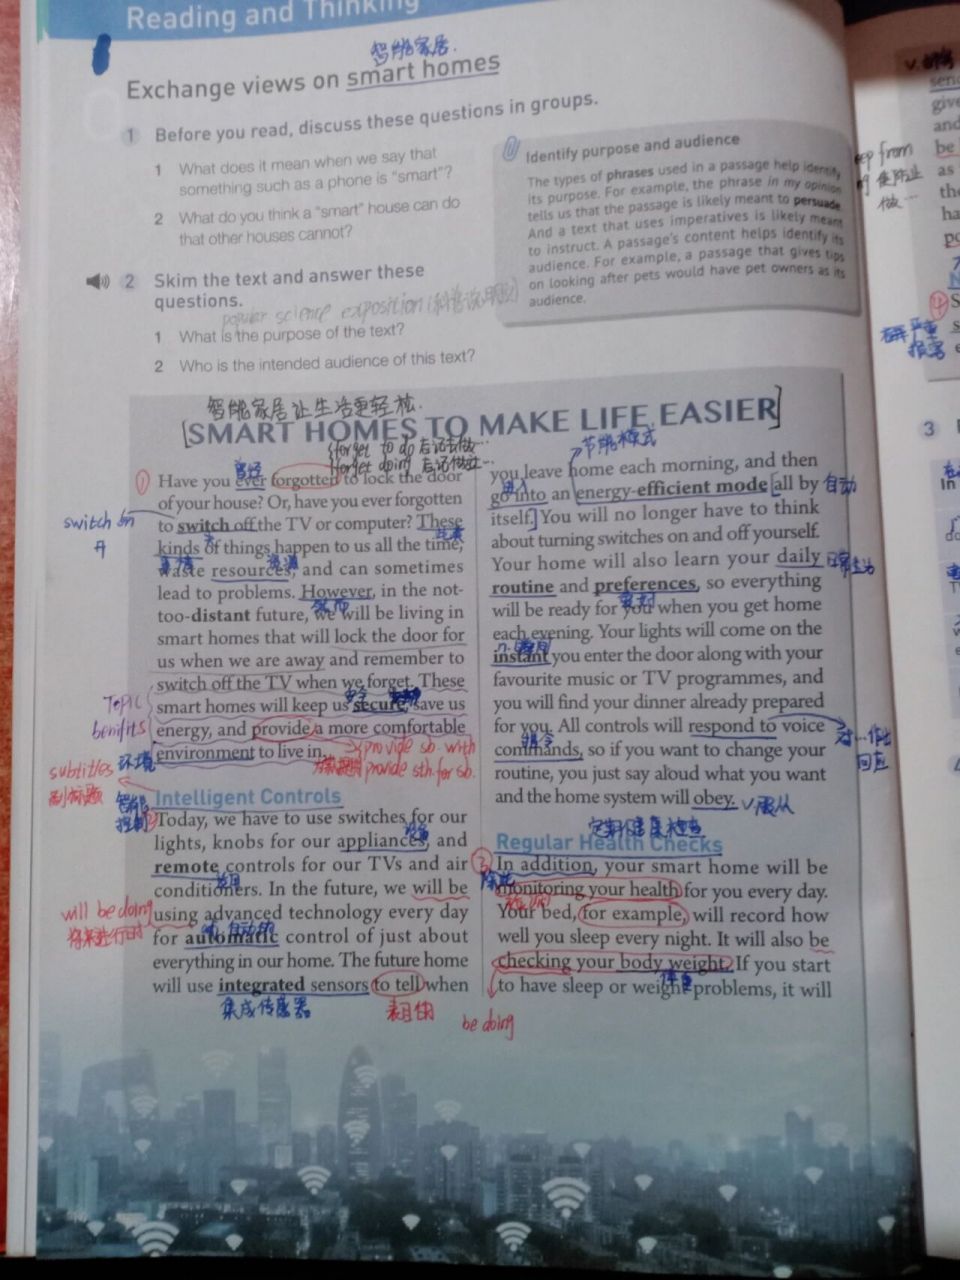 Reading and Thinking
智能家居.
Exchange views on smart homes
1 Before you read, discuss these questions in groups.
1 What does it mean when we say that
something such as a phone is “smart”?
2 What do you think a “smart” house can do
that other houses cannot?
2 Skim the text and answer these
questions.
popular science exposition (科普说明文)
1 What is the purpose of the text?
2 Who is the intended audience of this text?
Identify purpose and audience
The types of phrases used in a passage help identify
its purpose. For example, the phrase in my opinion
tells us that the passage is likely meant to persuade.
And a text that uses imperatives is likely meant
to instruct. A passage's content helps identify its
audience. For example, a passage that gives tips
on looking after pets would have pet owners as its
audience.
智能家居让生活更轻松.
[SMART HOMES TO MAKE LIFE EASIER]
forget to do 忘记去做…
forget doing 忘记做过…
曾经
①
Have you ever forgotten to lock the door
of your house? Or, have you ever forgotten
switch on
开
to switch off the TV or computer? These
kinds of things happen to us all the time,
事情
资源
waste resources, and can sometimes
lead to problems. However, in the not-
然而
too-distant future, we will be living in
smart homes that will lock the door for
us when we are away and remember to
switch off the TV when we forget. These
安全
Topic
benifits
smart homes will keep us secure, save us
energy, and provide a more comfortable
environment to live in.
环境
provide sb. with
provide sth. for sb.
subtitles
副标题
智能
控制
Intelligent Controls
②
Today, we have to use switches for our
lights, knobs for our appliances, and
设备
remote controls for our TVs and air
conditioners. In the future, we will be
will be doing
将来进行时
using advanced technology every day
for automatic control of just about
自动的
everything in our home. The future home
will use integrated sensors to tell when
集成传感器
表目的
节能模式
you leave home each morning, and then
进入
go into an energy-efficient mode [all by
自动
itself.] You will no longer have to think
about turning switches on and off yourself.
Your home will also learn your daily
日常生活
routine and preferences, so everything
will be ready for you when you get home
each evening. Your lights will come on the
instant you enter the door along with your
favourite music or TV programmes, and
you will find your dinner already prepared
for you. All controls will respond to voice
对…作出
回应
命令
commands, so if you want to change your
routine, you just say aloud what you want
and the home system will obey.
v.服从
定期健康检查
Regular Health Checks
③
In addition, your smart home will be
除此
monitoring your health for you every day.
Your bed, for example, will record how
well you sleep every night. It will also be
checking your body weight. If you start
体重
to have sleep or weight problems, it will
be doing
ep from
使…停止
做…
send
give
and
be
as
the
ha
④
严重
损害
3
In